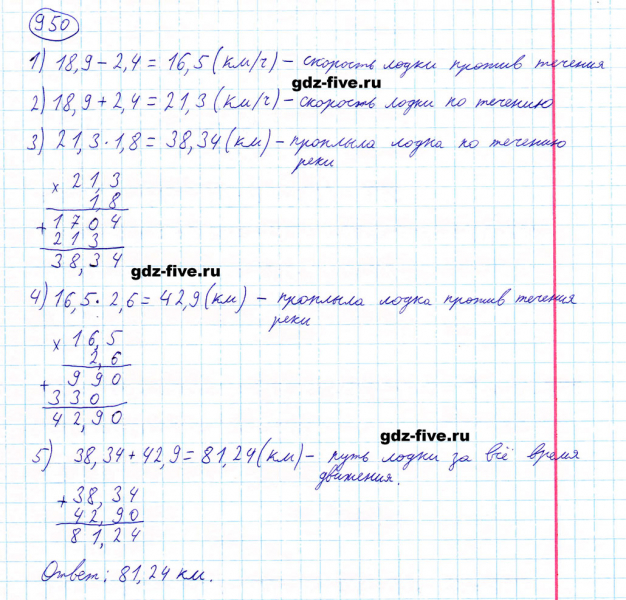 950
1) 18,9 − 2,4 = 16,5 (км/ч) – скорость лодки против течения
gdz-five.ru
2) 18,9 + 2,4 = 21,3 (км/ч) – скорость лодки по течению
3) 21,3 · 1,8 = 38,34 (км) – проплыла лодка по течению
реки
× 21,3
1,8
+ 1704
213
38,34
gdz-five.ru
4) 16,5 · 2,6 = 42,9 (км) – проплыла лодка против течения
реки
× 16,5
2,6
+ 990
330
42,90
gdz-five.ru
5) 38,34 + 42,9 = 81,24 (км) – путь лодки за всё время
движения.
+ 38,34
42,90
81,24
Ответ: 81,24 км.